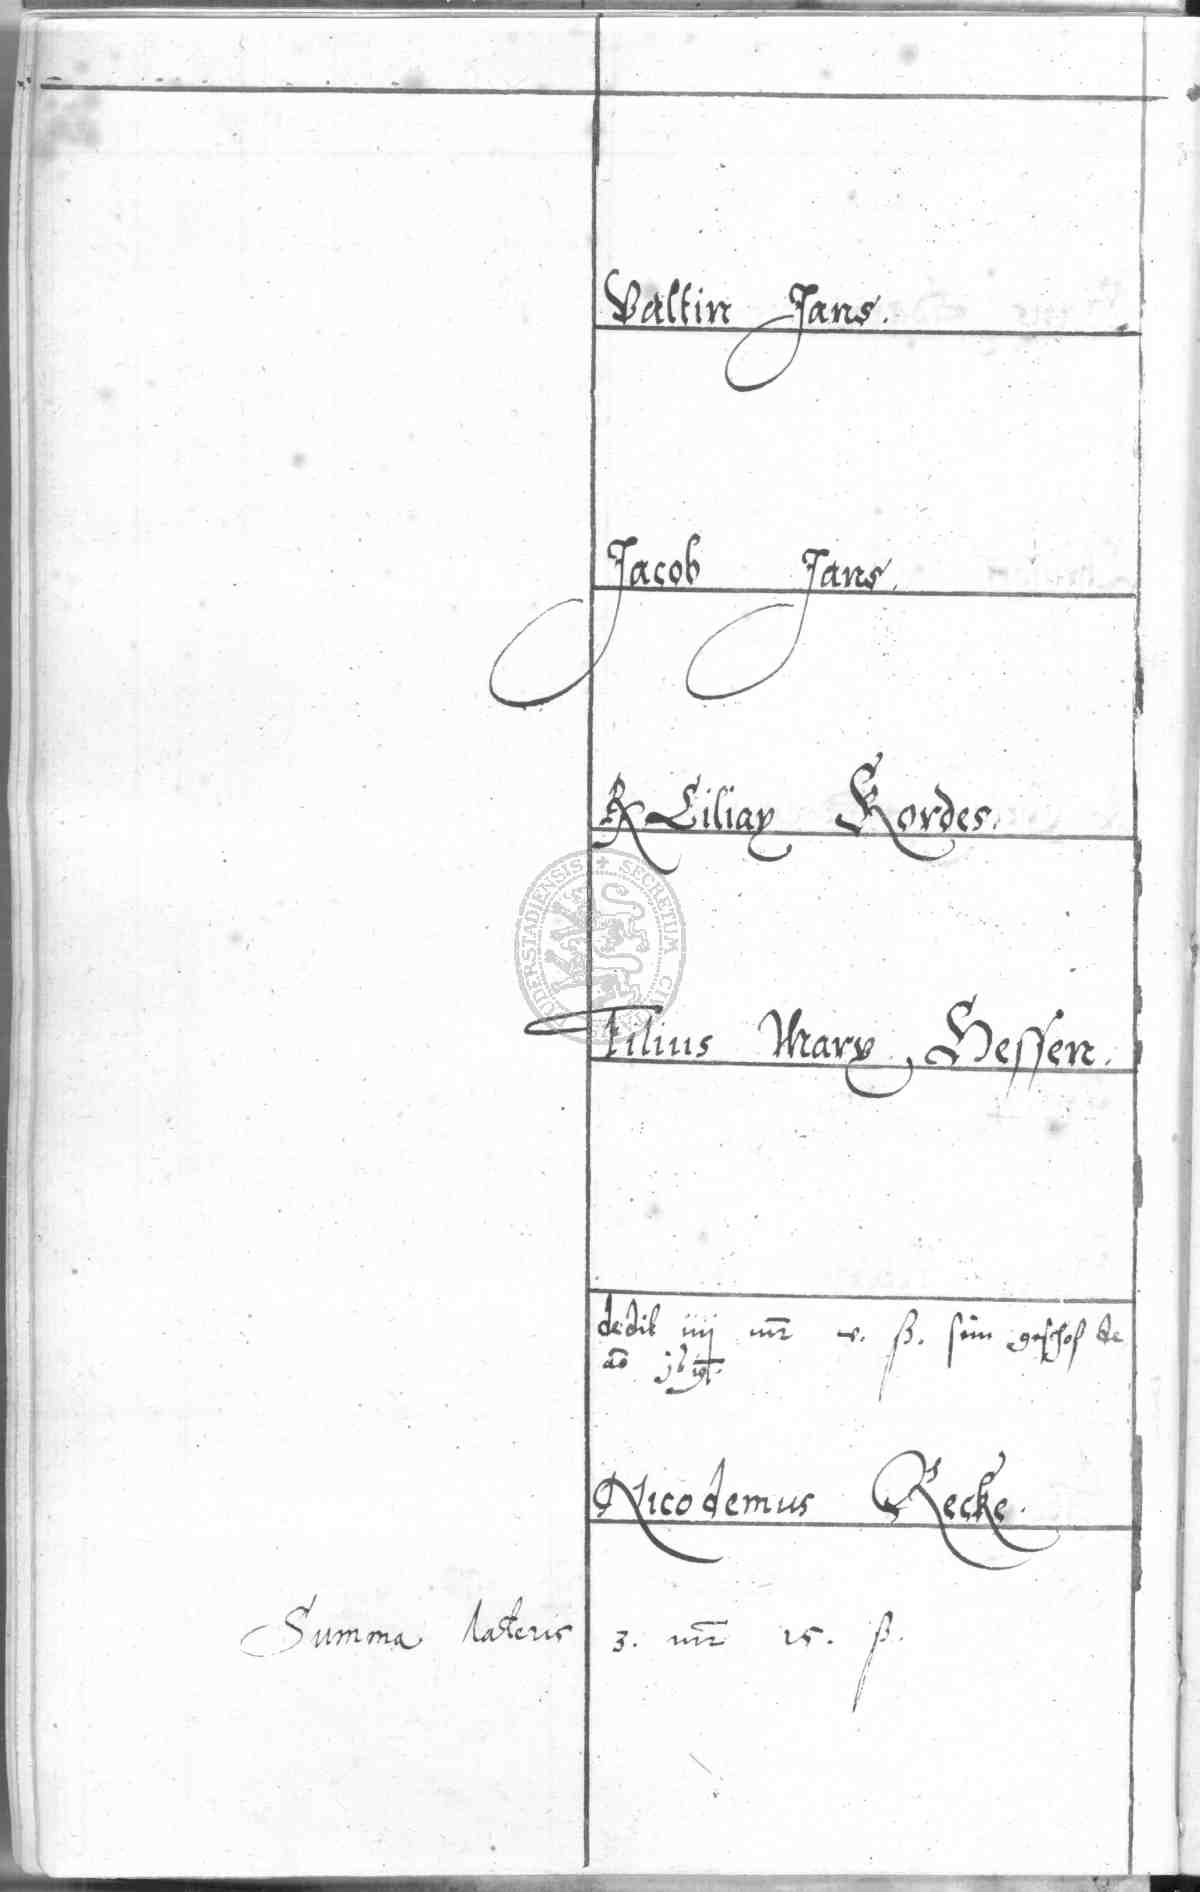 Valtin Jans.
Jacob Jans.
Rx Ciliax Kordes.
DERSTADIENSIS ✚ SECRETUM CI
Filius Marx Hessen.
dedit iiij mr v. ß. sin geschos de
ao
Nicodemus Recke.
Summa lateris 3. mr 15. ß.